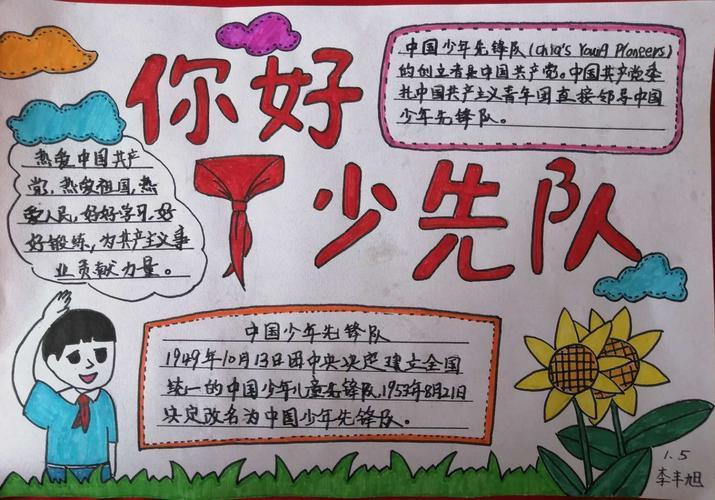 你好
少先队
中国少年先锋队(China's Young Pioneers)
的创立者是中国共产党。中国共产党委
托中国共产主义青年团直接领导中国
少年先锋队。
热爱中国共产
党,热爱祖国,热
爱人民,好好学习,好
好锻炼,为共产主义事
业贡献力量。
中国少年先锋队
1949年10月13日由中央决定建立全国
统一的中国少年儿童先锋队,1953年8月21日
决定改名为中国少年先锋队。
1.5
李丰旭